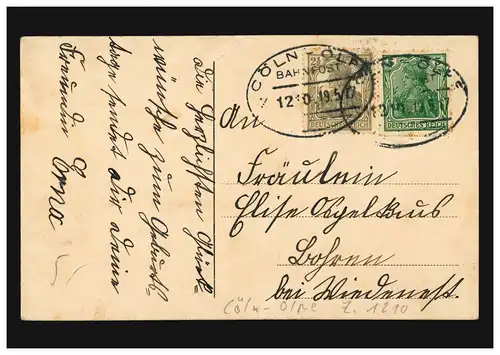 Die herzlichsten Glück-
wünsche zum Geburts-
tage sendet dir deine
Freundin Erna
CÖLN - OLPE
BAHNPOST
Z 1210 19.5.17
1210 19.5.17
2½
DEUTSCHES REICH
DEUTSCHES REICH
An
Fräulein
Elise
Bohren
bei Wiedenest.
Cöln - Olpe Z. 1210